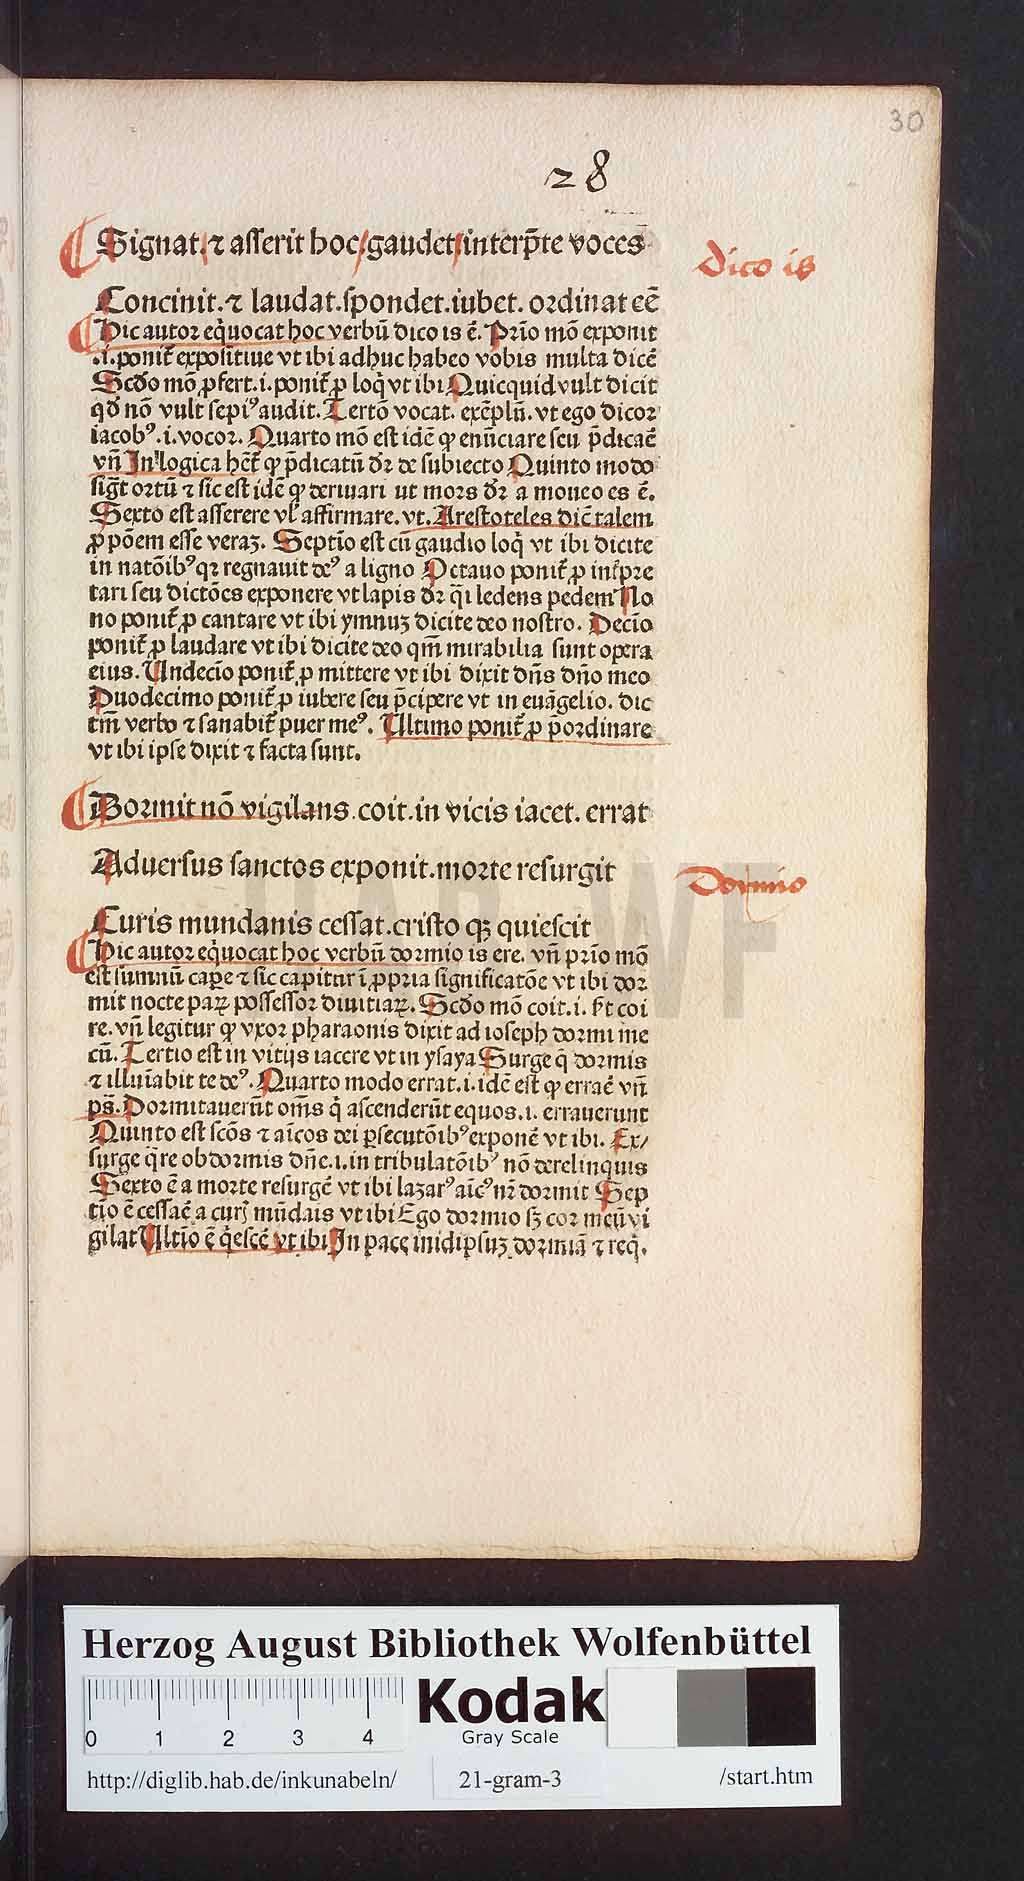 30
28
Signat. ⁊ asserit hoc/gaudet/interp̄te voces
Dico is
Concinit. ⁊ laudat. spondet. iubet. ordinat eē
Hic autor eq̇uocat hoc verbū dico is ē. Prīo mō exponit
.i. ponit᷑ expositiue vt ibi adhuc habeo vobis multa dicē
Scd̄o mō ꝓfert. i. ponit᷑ ꝓ loq̇ vt ibi Quicquid vult dicit
qd̄ nō vult sepiꝰ audit. Tertō vocat. exēplū. vt ego dicor
iacobꝰ. i. vocor. Quarto mō est idē ꝙ enūciare seu p̄dicaē
vn̄ In logica hēt᷑ ꝙ p̄dicatū dr̄ de subiecto Quinto modo
siḡt ortū ⁊ sic est idē ꝙ deriuari ut mors dr̄ a moueo es ē.
Sexto est asserere vl᷑ affirmare. vt. Arestoteles dicē talem
ꝓpōem esse veraꝫ. Septīo est cū gaudio loq̇ vt ibi dicite
in natōibꝰ qꝛ regnauit deꝰ a ligno Octauo ponit᷑ ꝓ int᷑pre
tari seu dictōes exponere vt lapis dr̄ q̄i ledens pedem No
no ponit᷑ ꝓ cantare vt ibi ymnuꝫ dicite deo nostro. Decīo
ponit᷑ ꝓ laudare vt ibi dicite deo qm̄ mirabilia sunt opera
eius. Undecīo ponit᷑ ꝓ mittere vt ibi dixit dn̄s dn̄o meo
Duodecimo ponit᷑ ꝓ iubere seu p̄cipere vt in euāgelio. dic
tm̄ verbo ⁊ sanabit᷑ puer meꝰ. Ultimo ponit᷑ ꝓ p̄ordinare
vt ibi ipse dixit ⁊ facta sunt.
Dormit nō vigilans. coit. in vicis iacet. errat
Aduersus sanctos exponit. morte resurgit
Dormio
Curis mundanis cessat. cristo qꝫ quiescit
Hic autor eq̇uocat hoc verbū dormio is ere. vn̄ prīo mō
est sumnū caꝑe ⁊ sic capitur ī ꝓpria significatōe vt ibi dor
mit nocte paꝝ possessor diuitiaꝝ. Scd̄o mō coit. i. ht᷑ coi
re. vn̄ legitur ꝙ vxor pharaonis dixit ad ioseph dormi me
cū. Tertio est in vitijs iacere vt in ysaya Surge q̇ dormis
⁊ illuīabit te deꝰ. Quarto modo errat. i. idē est ꝙ erraē vn̄
ps̄. Dormitauerūt om̄s q̇ ascenderūt equos. i. errauerunt
Quinto est scōs ⁊ aīcos dei ꝑsecutōibꝰ exponē vt ibi. Ex/
surge q̄re obdormis dn̄e. i. in tribulatōibꝰ nō derelinquis
Sexto ē a morte resurgē vt ibi lazarꝰ aīcꝰ nr̄ dormit Sep
tīo ē cessaē a curꝭ mūdaīs vt ibi Ego dormio sꝫ cor meū vi
gilat Ultīo ē q̇escē vt ibi In pace inidipsuꝫ dormiā ⁊ req̇.
HAB WF
Herzog August Bibliothek Wolfenbüttel
0 1 2 3 4
Kodak
Gray Scale
http://diglib.hab.de/inkunabeln/ 21-gram-3 /start.htm